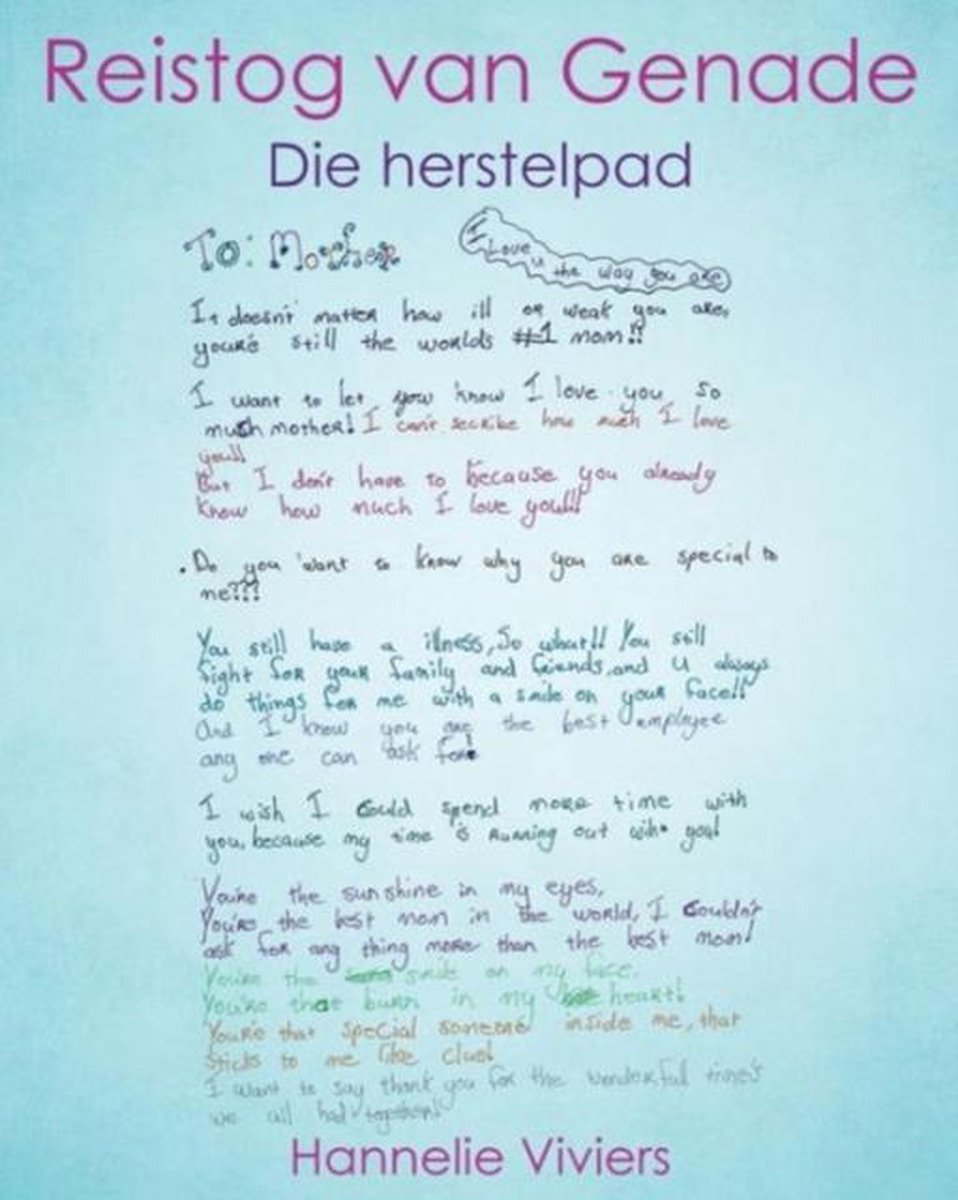 Reistog van Genade
Die herstelpad
To: Mother
I Love u the way you are
It doesn't matter how ill or weak you are,
youre's still the worlds #1 mom!!
I want to let you know I love you so
much mother! I can't scribe how much I love
you!!
But I don't have to because you already
know how much I love you!!!
. Do you want to know why you are special to
me???
You still have a illness, So what!! You still
fight for your family and friends, and u always
do things for me with a smile on your face!!
And I know you are the best employee
any one can ask for!
I wish I could spend more time with
you, because my time is running out with you!
You're the sunshine in my eyes,
You're the best mom in the world, I couldn't
ask for any thing more than the best mom!
You're the smile on my face,
You're that burn in my heart!
You're that special someone inside me, that
sticks to me like clue!
I want to say thank you for the wonderful time's
we all had together!
Hannelie Viviers